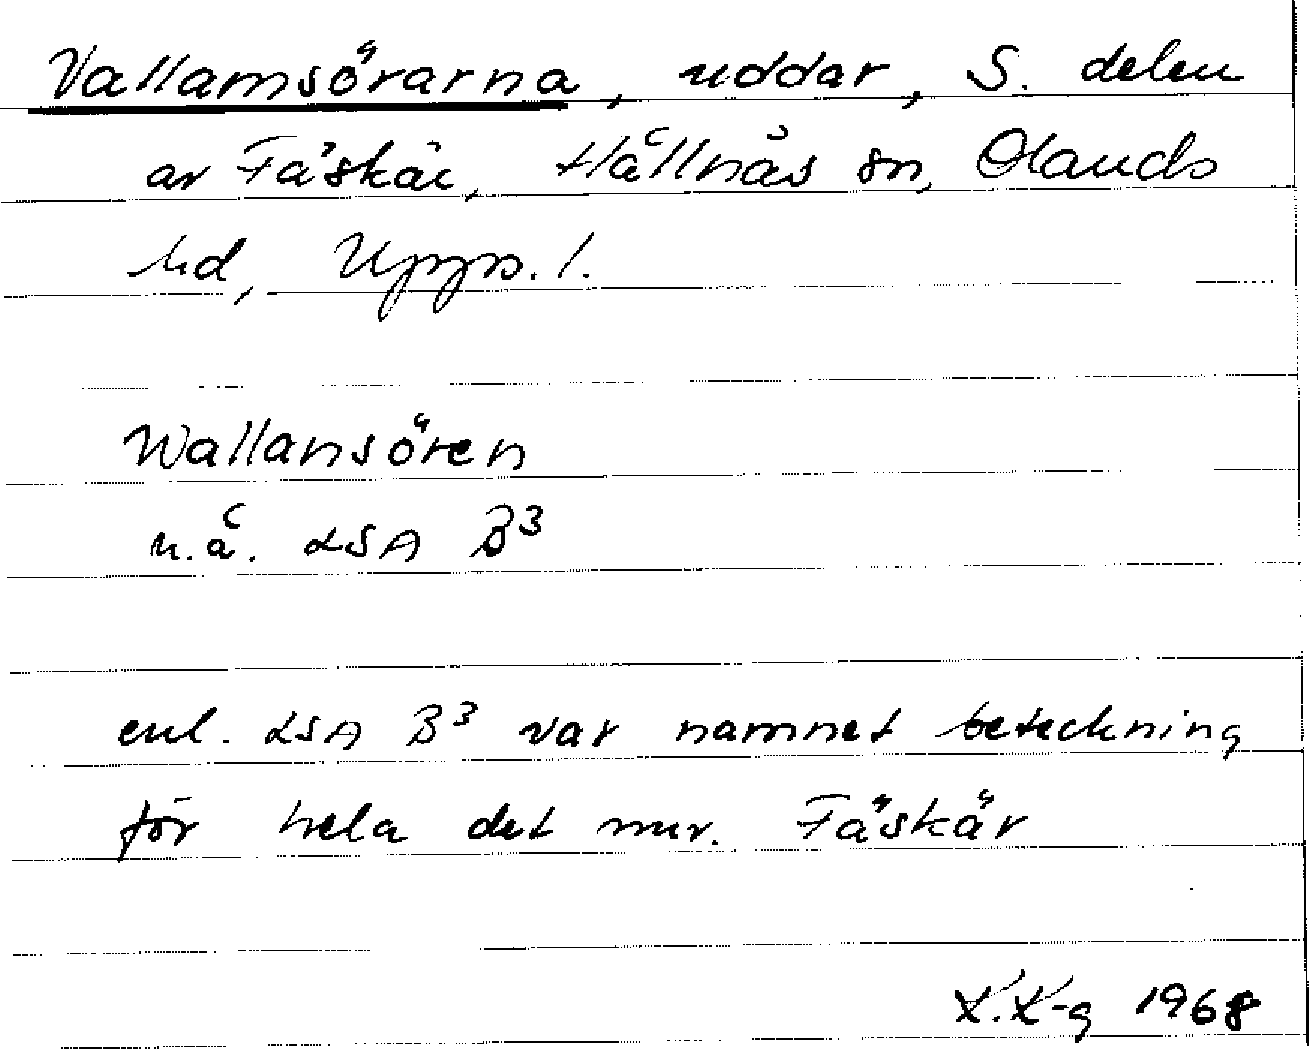 Vallamsörarna, uddar, S. delen
av Fäskär, Hållnäs sn, Olands
hd, Upps. l.
Wallansören
u.å. LSA B3
enl. LSA B3 var namnet beteckning
för hela det nuv. Fäskär
K.K-g 1968